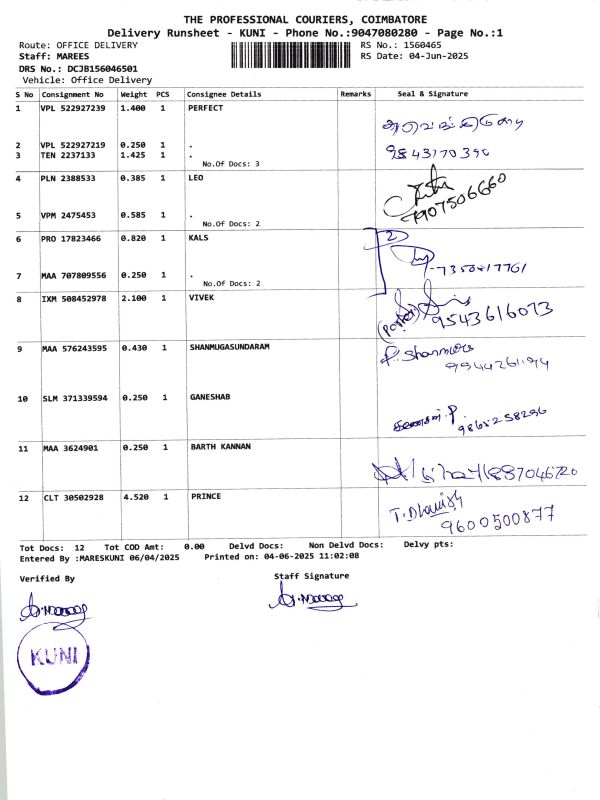 THE PROFESSIONAL COURIERS, COIMBATORE
Delivery Runsheet - KUNI - Phone No.:9047080280 - Page No.:1
Route: OFFICE DELIVERY RS No.: 1560465
Staff: MAREES RS Date: 04-Jun-2025
DRS No.: DCJB156046501
Vehicle: Office Delivery
S No Consignment No Weight PCS Consignee Details Remarks Seal & Signature
1 VPL 522927239 1.400 1 PERFECT
2 VPL 522927219 0.250 1 .
3 TEN 2237133 1.425 1 . 9843170390
No.Of Docs: 3
4 PLN 2388533 0.385 1 LEO
5 VPM 2475453 0.585 1 .
No.Of Docs: 2
6 PRO 17823466 0.820 1 KALS
7 MAA 707809556 0.250 1 .
No.Of Docs: 2
8 IXM 508452978 2.100 1 VIVEK
9543616073
9 MAA 576243595 0.430 1 SHANMUGASUNDARAM
10 SLM 371339594 0.250 1 GANESHAB
11 MAA 3624901 0.250 1 BARTH KANNAN
12 CLT 30502928 4.520 1 PRINCE
9600500877
Tot Docs: 12 Tot COD Amt: 0.00 Delvd Docs: Non Delvd Docs: Delvy pts:
Entered By :MARESKUNI 06/04/2025 Printed on: 04-06-2025 11:02:08
Verified By Staff Signature
KUNI